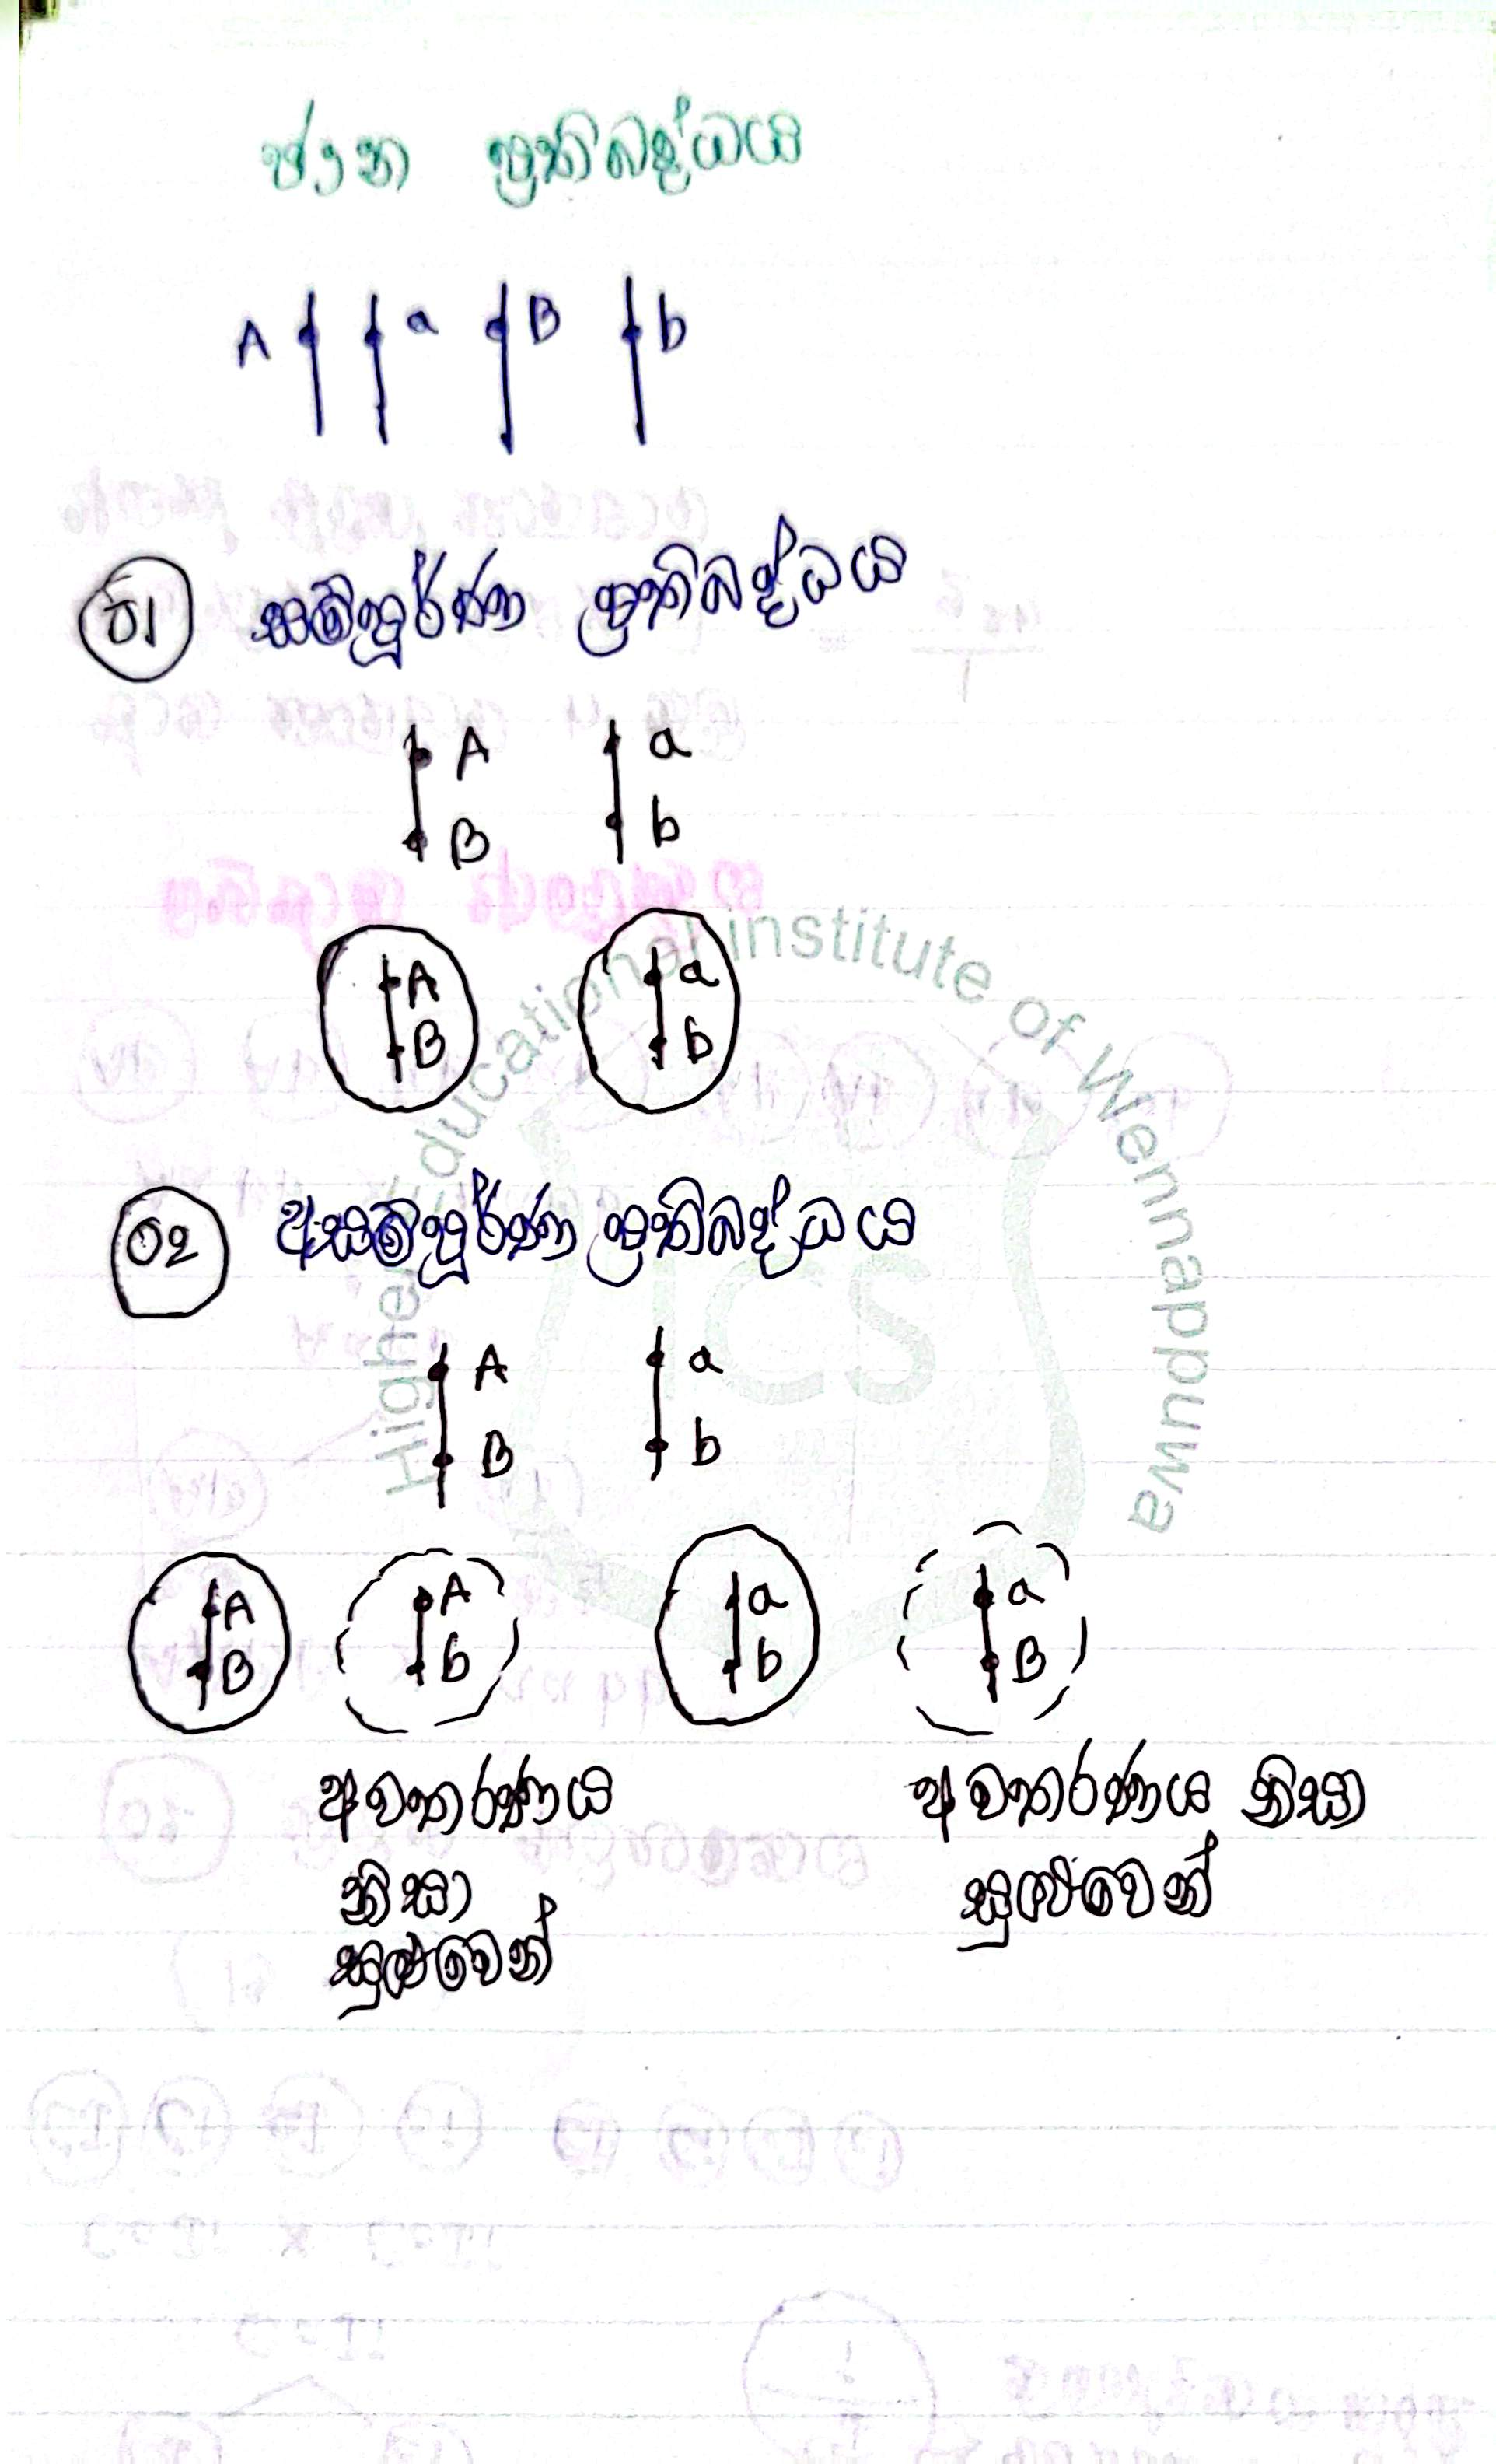 ජාන ප්‍රතිබද්ධය
A a B b
01 සම්පූර්ණ ප්‍රතිබද්ධය
A a
B b
A a
B b
02 අසම්පූර්ණ ප්‍රතිබද්ධය
A a
B b
A A a a
B b b B
අවතරණය අවතරණය නිසා
නිසා සුළුවෙන්
සුළුවෙන්
Higher Educational institute of Wennappuwa
ICS